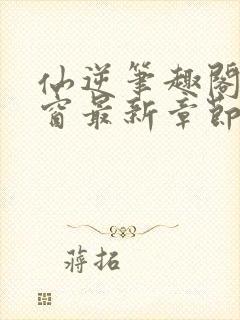 仙逆笔趣阁
窗最新章节
蒋拓